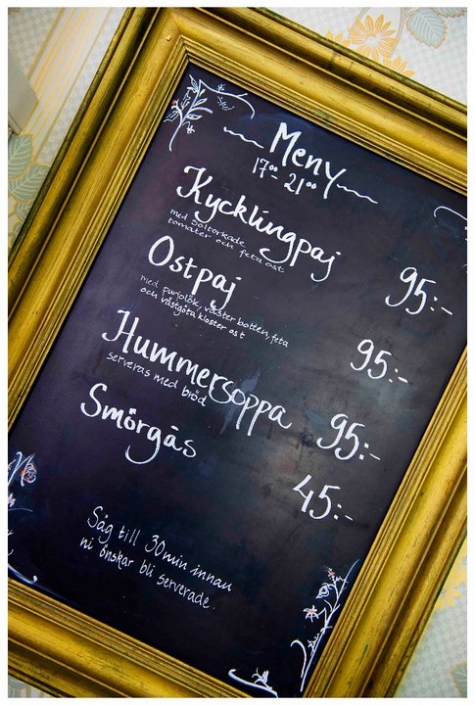 Meny
17⁰⁰-21⁰⁰
Kycklingpaj 95:-
med soltorkade
tomater och feta ost
Ostpaj 95:-
med purjolök, västerbotten, feta
och västgöta kloster ost
Hummersoppa 95:-
serveras med bröd
Smörgås 45:-
Säg till 30min innan
ni önskar bli serverade.